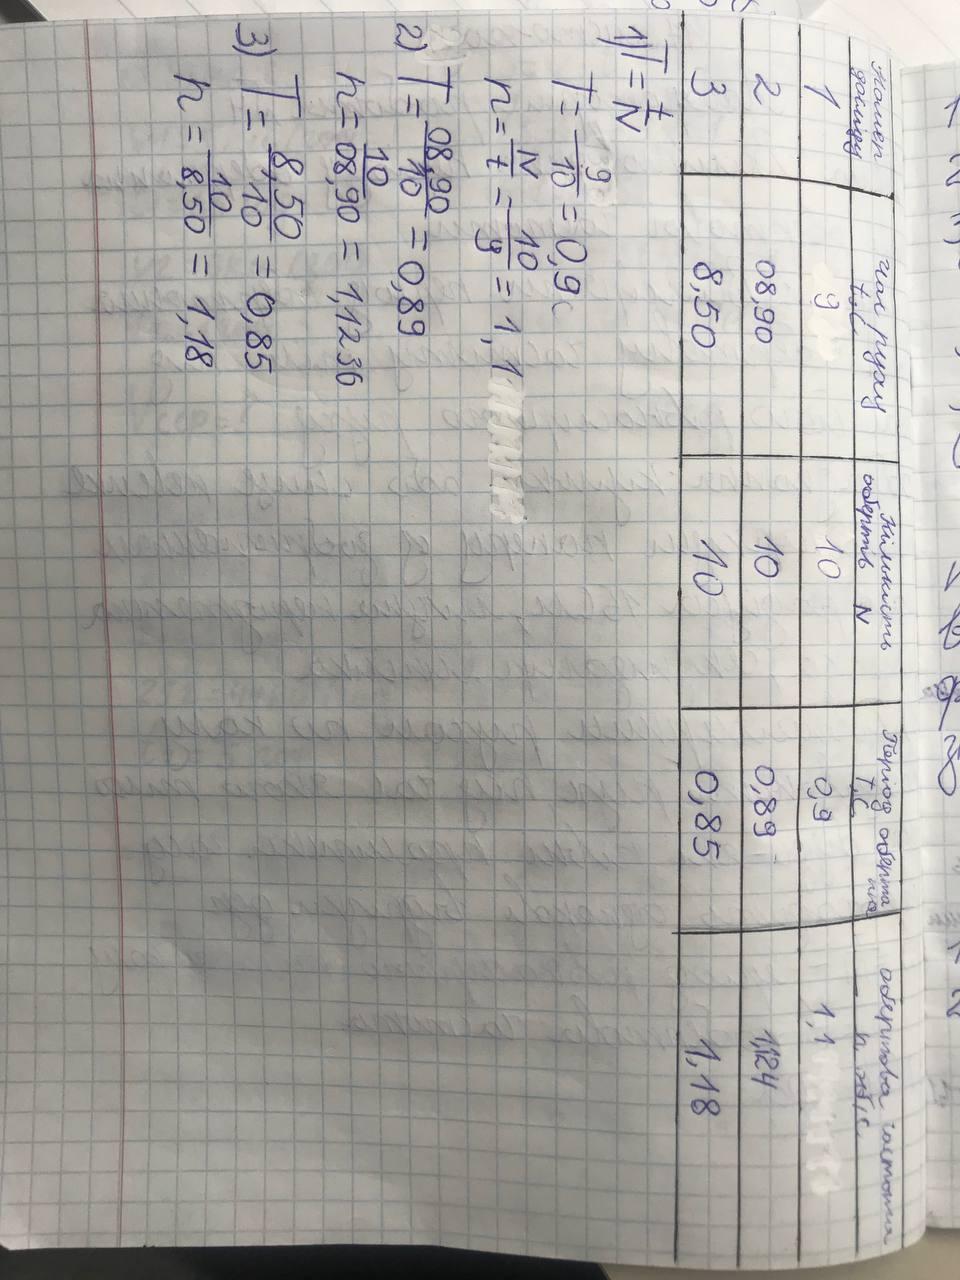 Номер досліду час руху t,с Кількість обертів N Період оберта ння T,с обертова частота n об/с
1 9 10 0,9 1,1
2 08,90 10 0,89 1,124
3 8,50 10 0,85 1,18
1) T = t/N
T = 9/10 = 0,9с
n = N/t = 10/9 = 1,1
2) T = 08,90/10 = 0,89
n = 10/08,90 = 1,1236
3) T = 8,50/10 = 0,85
n = 10/8,50 = 1,18